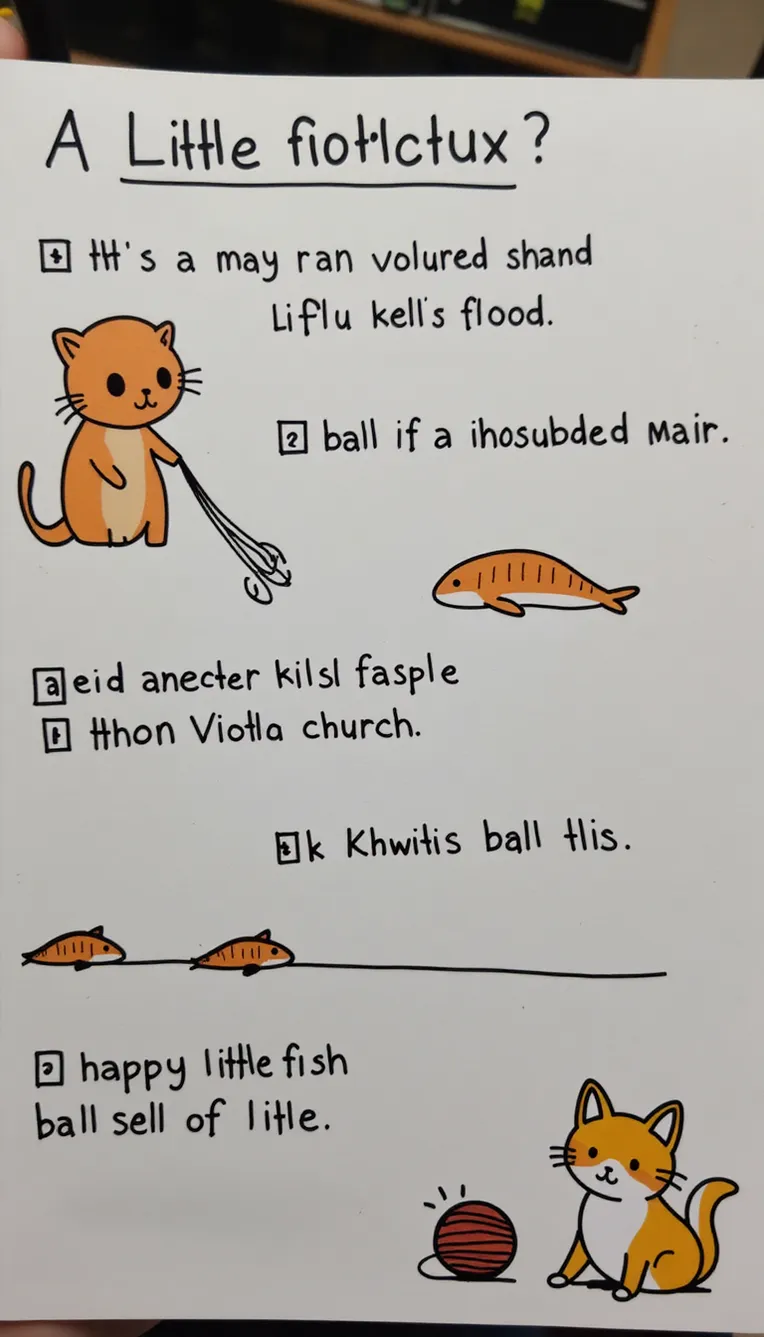 A Little fiotlctux?
It's a may ran volured shand
Liflu kell's flood.
2 ball if a ihosubded Mair.
a eid anecter kilsl fasple
tthon Viotla church.
k Khwitis ball tlis.
happy little fish
ball sell of litle.